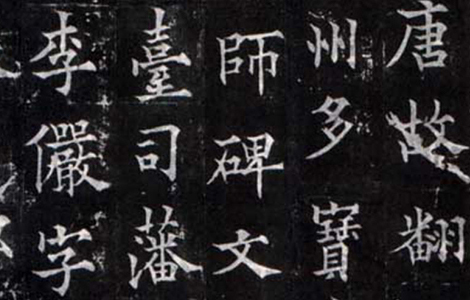 唐故翻
州多寶
師碑文
臺司藩
李儼字